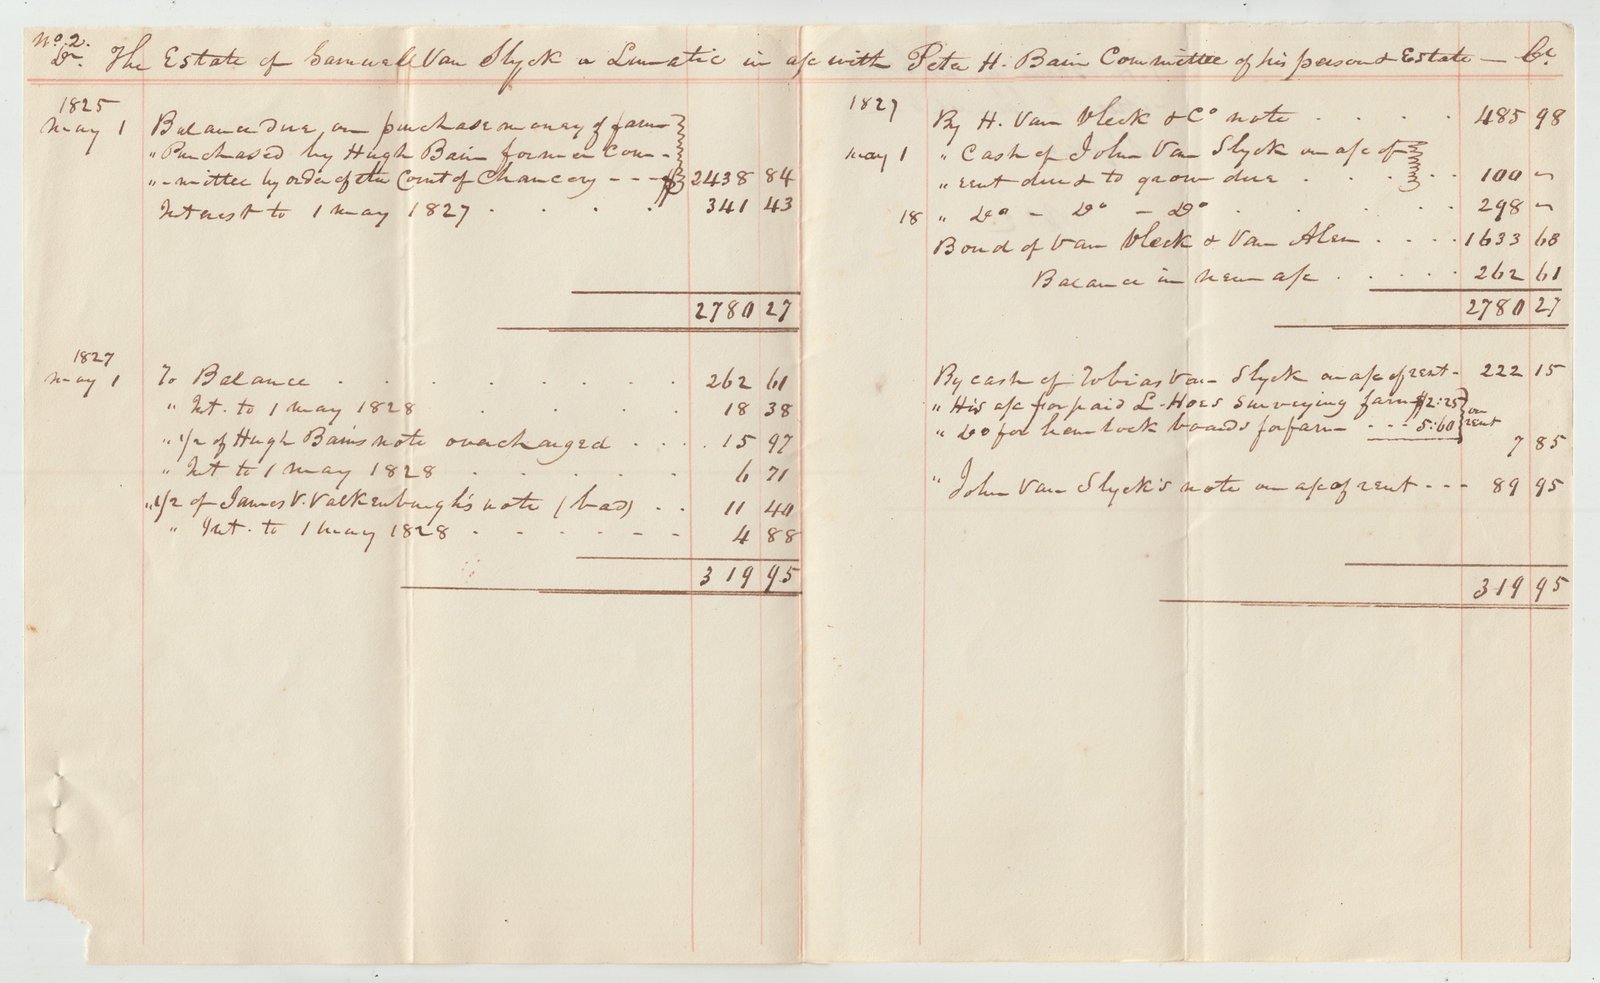 No. 2.
Dr. The Estate of Samuel Van Slyck a Lunatic in a/c with Peter H. Bain Committee of his person & Estate — Cr.
1825
May 1 Balance due, on purchase money of farm
" Purchased by Hugh Bain former Com-
" -mittee by order of the Court of Chancery - - - $ 2438 84
Interest to 1 May 1827 . . . . 341 43
2780 27
1827
May 1 To Balance . . . . . . . . . 262 61
" Int. to 1 May 1828 . . . . 18 38
" 1/2 of Hugh Bain's note overcharged . . . . 15 97
" Int to 1 May 1828 . . . . . . 6 71
" 1/2 of James V. Valkenburgh's note (bad) . . 11 40
" Int. to 1 May 1828 - - - - - - 4 88
319 95
1827
By H. Van Vleck & Co note . . . . 485 98
May 1 " Cash of John Van Slyck on a/c of
" rent due & to grow due . . . . . 100 "
18 " Do - Do - Do . . . . 298 "
Bond of Van Vleck & Van Alen . . . . 1633 68
Balance in new a/c . . . . . 262 61
2780 27
By cash of Tobias Van Slyck on a/c of rent - 222 15
" His a/c for paid L. Hoes surveying farm $2:25
" Do for hemlock boards for farm - - - 5:60 on rent
7 85
" John Van Slyck's note on a/c of rent - - - 89 95
319 95